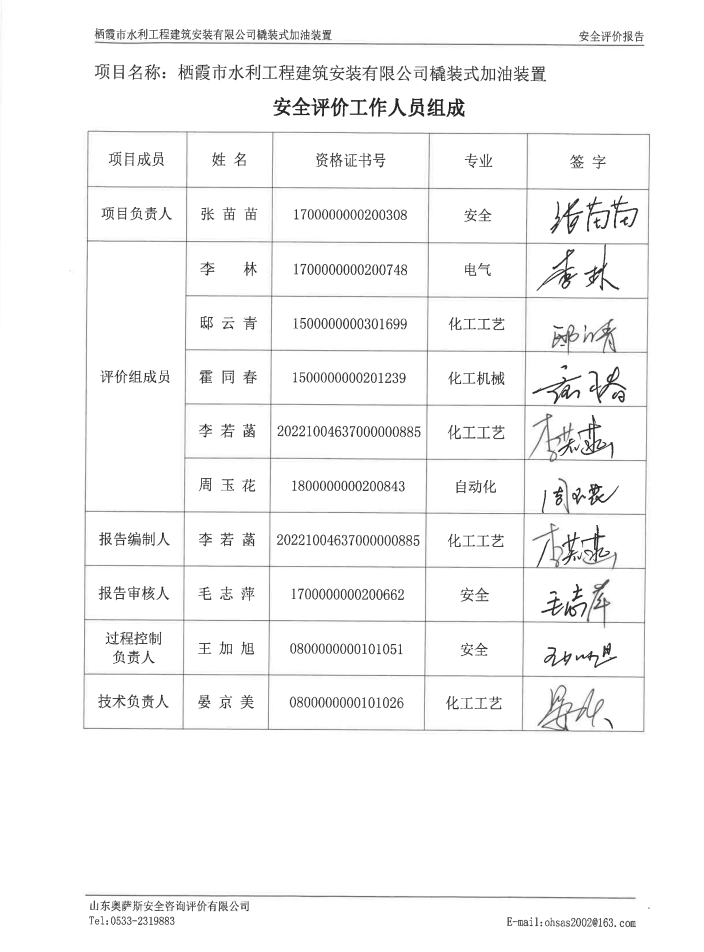 栖霞市水利工程建筑安装有限公司橇装式加油装置 安全评价报告
项目名称：栖霞市水利工程建筑安装有限公司橇装式加油装置
安全评价工作人员组成
项目成员 姓名 资格证书号 专业 签字
项目负责人 张苗苗 1700000000200308 安全 张苗苗
评价组成员 李林 1700000000200748 电气 李林
邸云青 1500000000301699 化工工艺 邸云青
霍同春 1500000000201239 化工机械 霍同春
李若菡 20221004637000000885 化工工艺 李若菡
周玉花 1800000000200843 自动化 周玉花
报告编制人 李若菡 20221004637000000885 化工工艺 李若菡
报告审核人 毛志萍 1700000000200662 安全 毛志萍
过程控制
负责人 王加旭 0800000000101051 安全 王加旭
技术负责人 晏京美 0800000000101026 化工工艺
山东奥萨斯安全咨询评价有限公司
Tel:0533-2319883 E-mail:ohsas2002@163.com